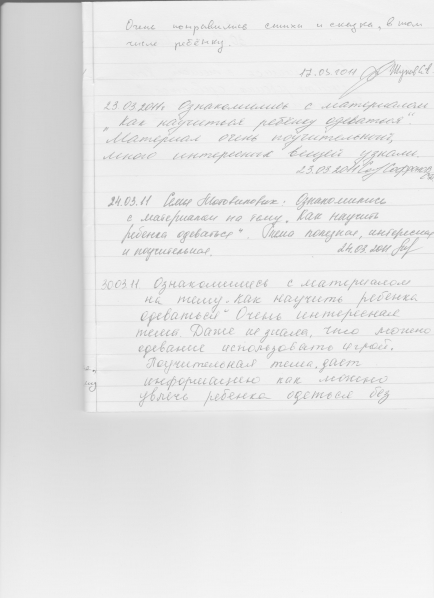 Очень понравились стихи и сказка, в том
числе ребёнку.
17.03.2011
23.03.2011г Ознакомились с материалом
„Как научиться ребенку одеваться".
Материал очень поучительный,
много интересных вещей узнали.
23.03.2011
24.03.11 Семья : Ознакомились
с материалом на тему „Как научить
ребенка одеваться". Тема полезная, интересная
и поучительная. 24.03.2011
30.03.11 Ознакомились с материалом
на тему „Как научить ребенка
одеваться" Очень интересная
тема. Даже не знала, что можно
одевание использовать игрой.
Поучительная тема, дает
информацию как можно
увлечь ребенка одеться без